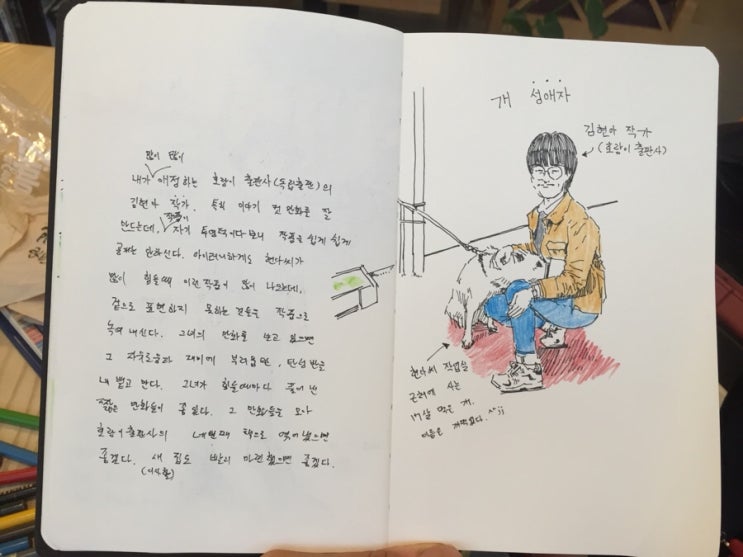 많이 많이
내가 애정하는 호랑이 출판사(독립출판)의
김현아 작가. 특히 이야기 컷 만화를 잘
만드는데, 작품이 자기 투영적이다보니 작품을 쉽게 쉽게
공개는 안하신다. 아이러니하게도 현아씨가
많이 힘들때 이런 작품이 많이 나오는데,
겉으로 표현하지 못하는 것들을 작품으로
녹여 내신다. 그녀의 만화를 보고 있으면
그 자유로움과 재미에 부러움만, 탄성만을
내뱉고 만다. 그녀가 힘들때마다 풀어 낸
짧은 만화들이 좋았다. 그 만화들을 모아
호랑이출판사의 네번째 책으로 엮어냈으면
좋겠다. 새 집도 빨리 마련했으면 좋겠다.
(이사할)
개 성애자
김현아 작가
(호랑이 출판사)
현아씨 작업실
근처에 사는
17살 먹은 개.
이름은 까먹었다. ^^;;